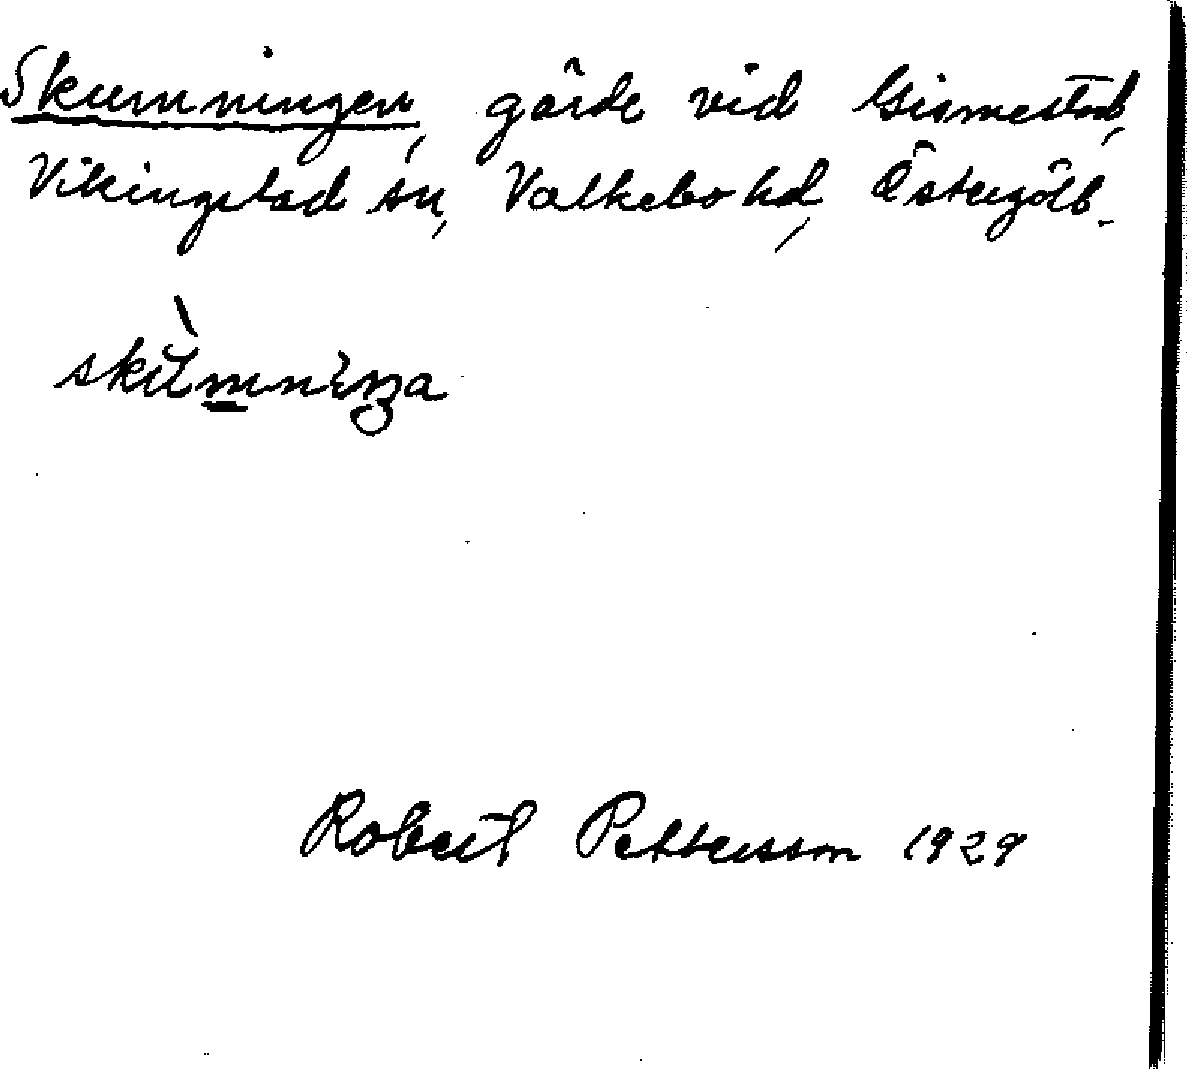 Skumningen, gärde vid Gismestad,
Vikingstad sn, Valkebo hd, Östergötl.
skùmniŋa
Robert Pettersson 1929